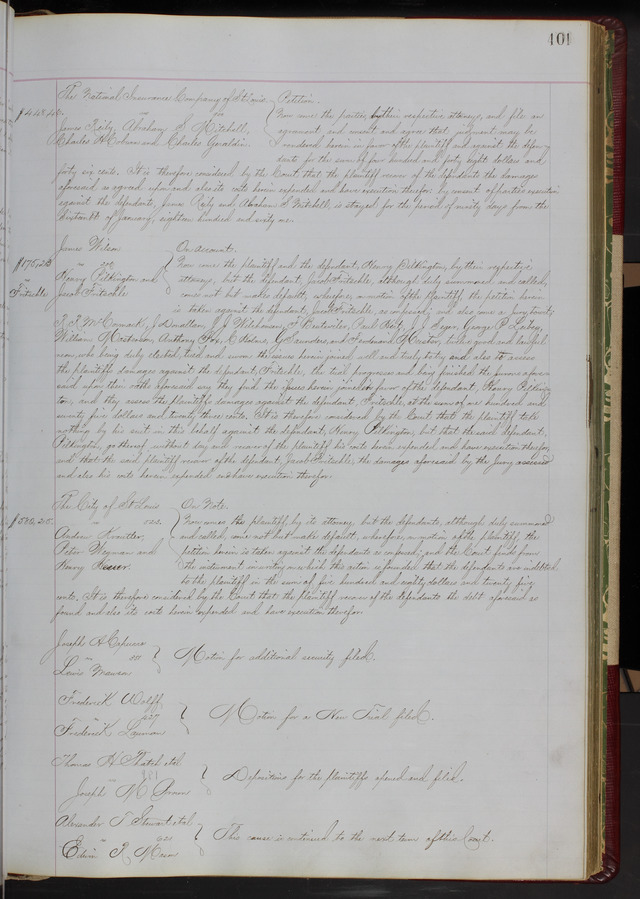 401
The National Insurance Company of St Louis Petition.
$448.46. vs Now come the parties, by their respective attorneys, and file an
James Reily, Abraham S. Mitchell, agreement, and consent and agree that judgment may be
Charles H. and Charles rendered herein in favor of the plaintiff and against the defen-
dants for the sum of four hundred and forty eight dollars and
forty six cents. It is therefore considered by the Court that the plaintiff recover of the defendants the damages
aforesaid so agreed upon and also its costs herein expended and have execution therefor; by consent of parties execution
against the defendants, James Reily and Abraham S. Mitchell, is stayed for the period of ninety days from the
first of January, eighteen hundred and sixty one.
James Wilson On Account.
$175.23 vs Now come the plaintiff and the defendant, Henry Pilkington, by their respective
Henry Pilkington and attorneys, but the defendant, Jacob Fritschle, although duly summoned and called,
Fritschle Jacob Fritschle comes not but makes default; wherefore, on motion of the plaintiff the petition herein
is taken against the defendant, Jacob Fritschle, as confessed; and also come a jury, to wit;
R. R. McCormack, J. , J. J. , F. , Paul , J. J. , George P. ,
William , Anthony Fox, C. , G. Saunders, and Ferdinand , twelve good and lawful
men, who being duly elected, tried and sworn the issues herein joined, well and truly to try and also to assess
the plaintiff's damages against the defendant, Fritschle, the trial progresses and being finished the jurors afore-
said upon their oaths aforesaid say they find the issues herein joined in favor of the defendant, Henry Pilking-
ton, and they assess the plaintiff's damages against the defendant, Fritschle, at the sum of one hundred and
seventy five dollars and twenty three cents. It is therefore considered by the Court that the plaintiff take
nothing by his suit in this behalf against the defendant, Henry Pilkington, but that the said defendant,
Pilkington, go thereof without day and recover of the plaintiff his costs herein expended and have execution therefor;
and that the said plaintiff recover of the defendant, Jacob Fritschle, the damages aforesaid by the Jury assessed
and also his costs herein expended and have execution therefor.
The City of St Louis On Note.
$580.25. vs. Now comes the plaintiff, by its attorney, but the defendants, although duly summoned
Andrew and called, come not but make default; wherefore, on motion of the plaintiff the
Peter Weyman and petition herein is taken against the defendants as confessed; and the Court finds from
Henry the instrument in writing on which this action is founded that the defendants are indebted
to the plaintiff in the sum of five hundred and eighty dollars and twenty five
cents. It is therefore considered by the Court that the plaintiff recover of the defendants the debt aforesaid so
found and also its costs herein expended and have execution therefor.
Joseph A.
vs Motion for additional security filed.
Louis
Frederick Wolff
Motion for a New Trial filed.
Frederick Layman
Thomas H. et al
Depositions for the plaintiffs opened and filed.
Joseph M. Brown
Alexander T. Stewart et al
vs This cause is continued to the next term of this Court.
Edwin R. Mason